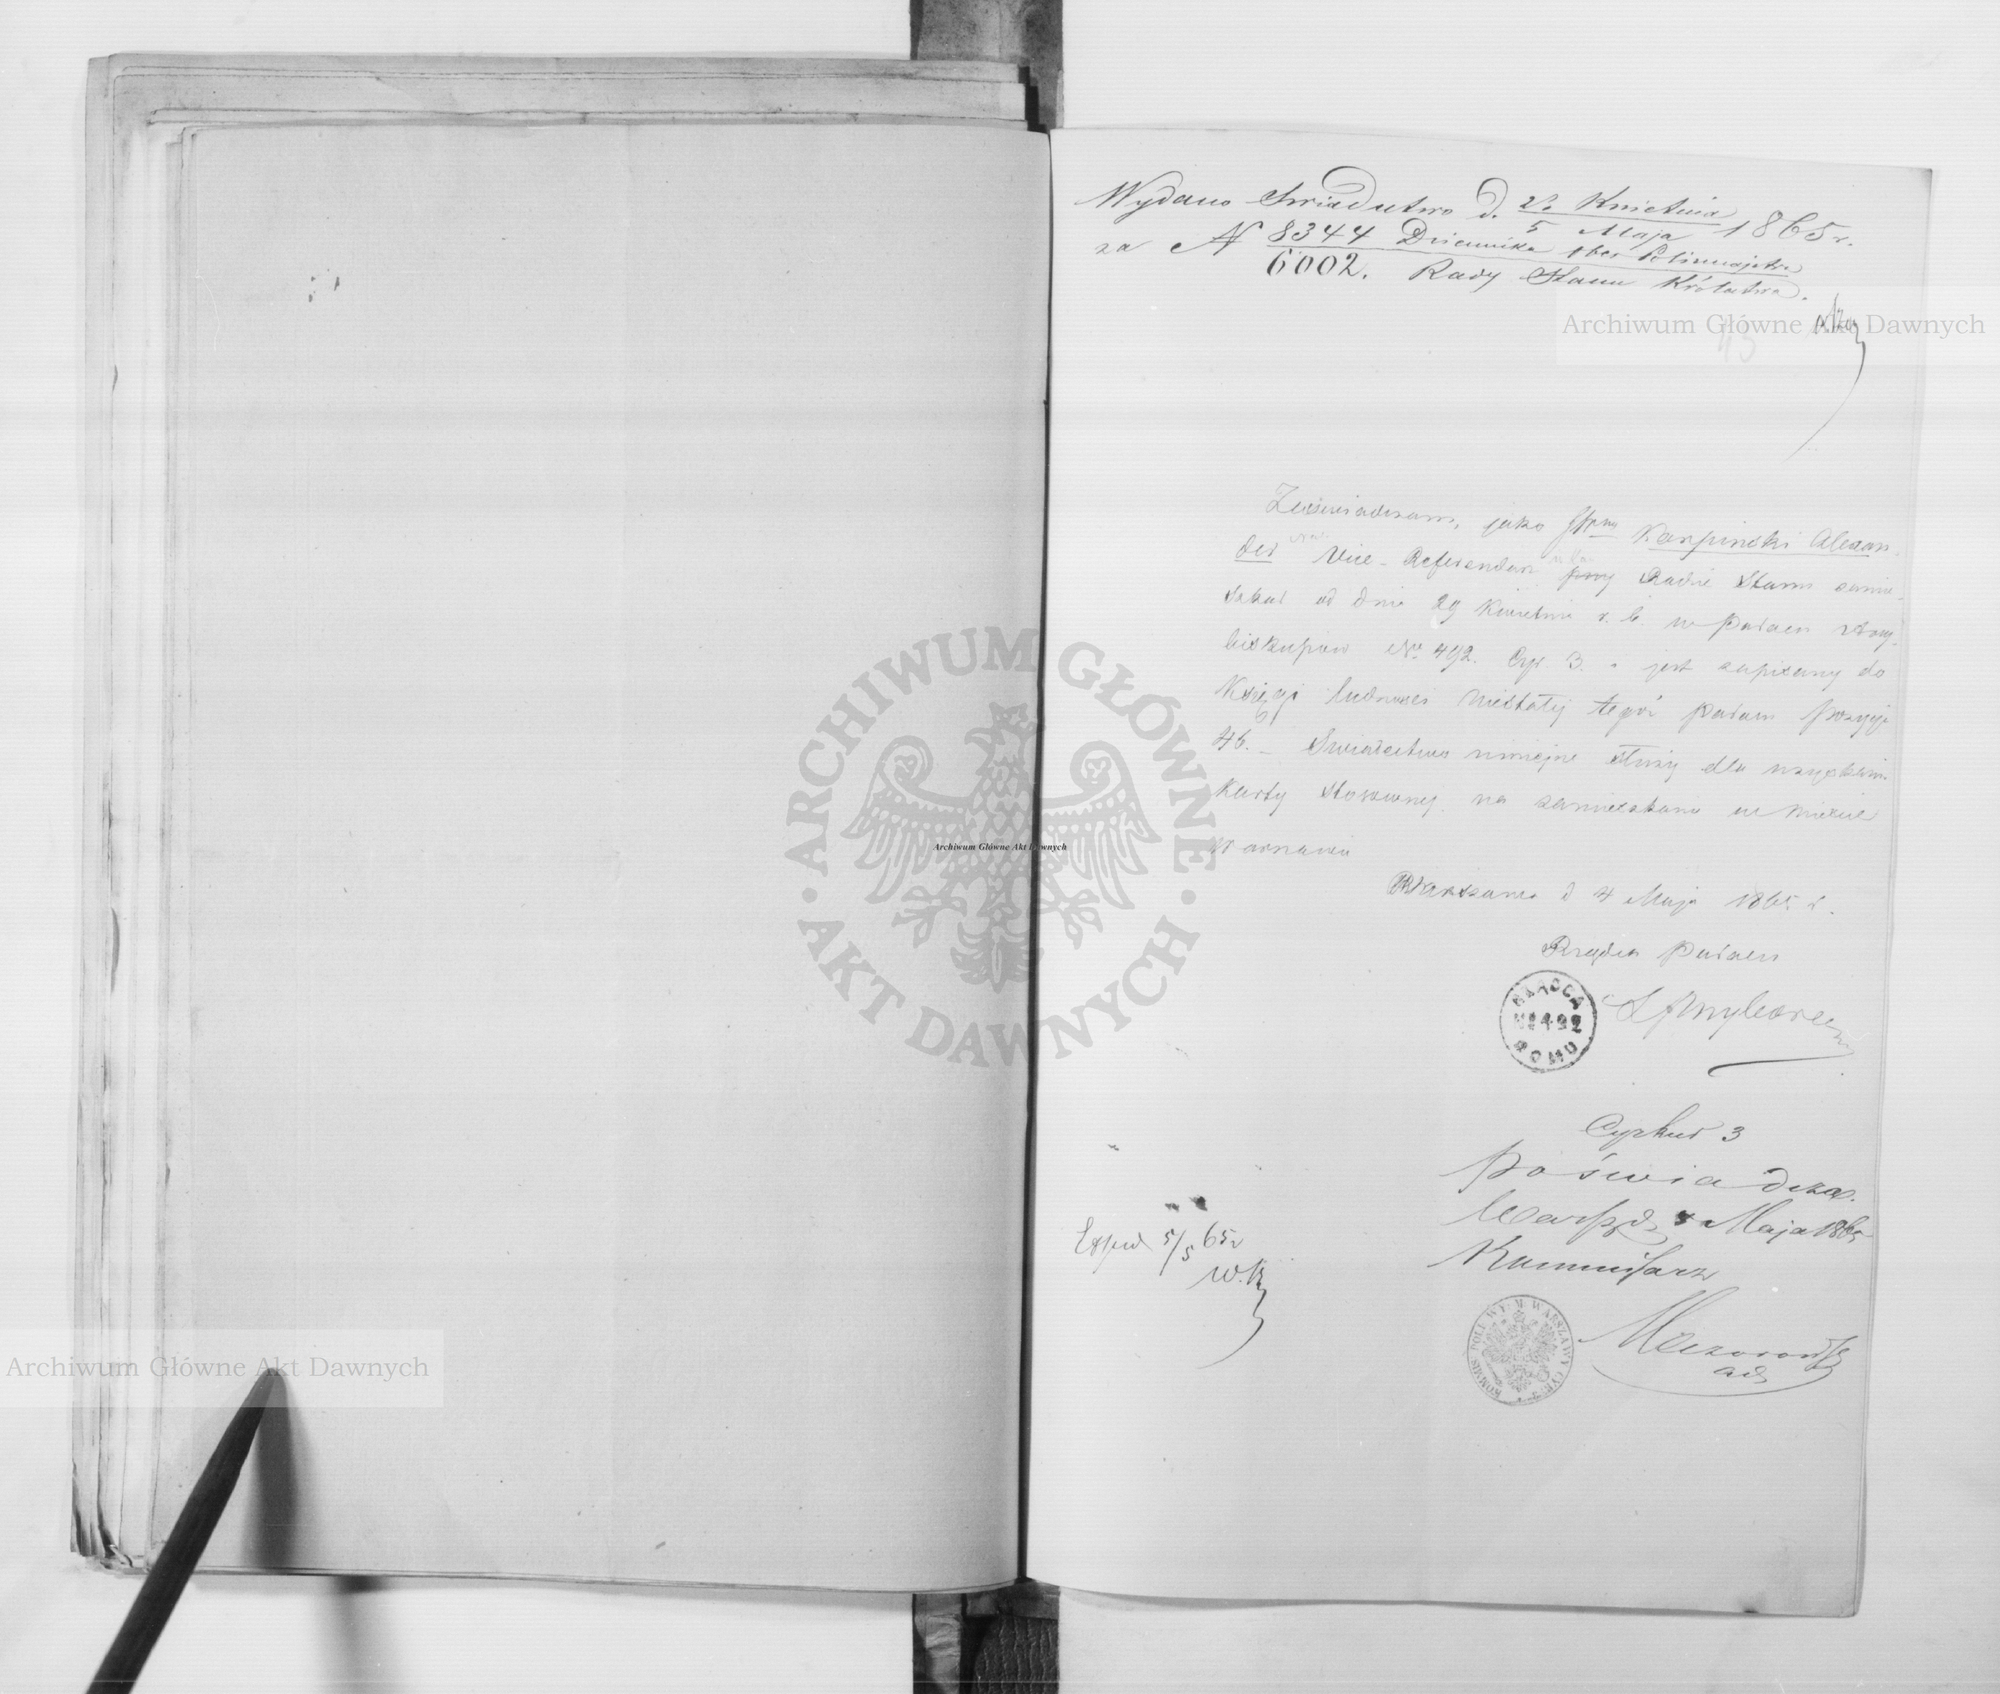 Wydano Swiadectwo d. Kwietnia 1865 r.
5 Maja
za N 8344 Dziennika Ober Policmajstra
6002. Rady Stanu Królestwa.
Archiwum Główne Akt Dawnych
43
Zaświadczam, jako JPan Karpinski Alexan-
der Vice-Referendarz przy Radzie Stanu zamie-
szkał od dnia 29 Kwietnia r. b. w Pałacu Arcy-
biskupów No 492. Cyr. 3. jest zapisany do
Księgi ludności niestałej tegoż Pałacu pozycja
46. Swiadectwo niniejsze służy dla uzyskania
Karty stosownej na zamieszkanie w Mieście
Warszawie
Warszawa d 4 Maja 1865 r.
Rządca Pałacu
RZĄDCA
No 492
DOMU
Cyrkuł 3
poświadcza.
Warsz d 5 Maja 1865
Kommissarz
Exped 5/5 65 r
W. K
KOMMIS: POLI: WY: M: WARSZAWY CYR: 3
ARCHIWUM GŁÓWNE AKT DAWNYCH
Archiwum Główne Akt Dawnych
Archiwum Główne Akt Dawnych